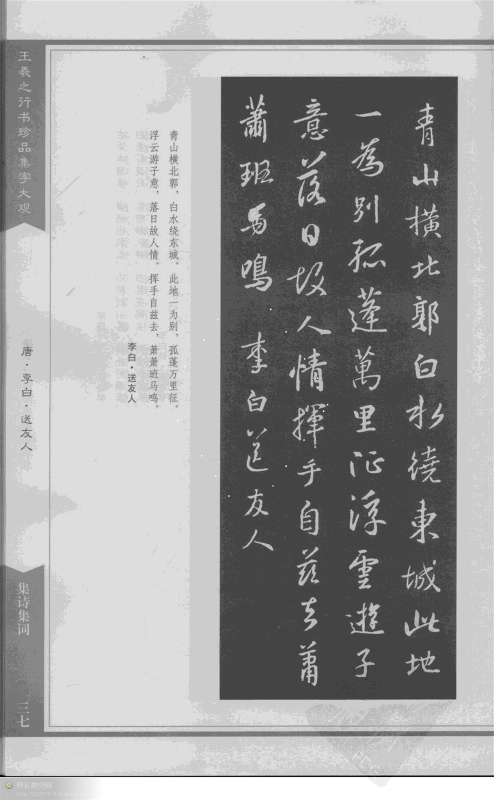 青山橫北郭白水繞東城此地
一為別孤蓬萬里征浮雲遊子
意落日故人情揮手自茲去蕭
蕭班馬鳴 李白送友人
青山横北郭，白水绕东城。此地一为别，孤蓬万里征。
浮云游子意，落日故人情。挥手自兹去，萧萧班马鸣。
李白·送友人
王羲之行书珍品集字大观
唐·李白·送友人
集诗集词
三七